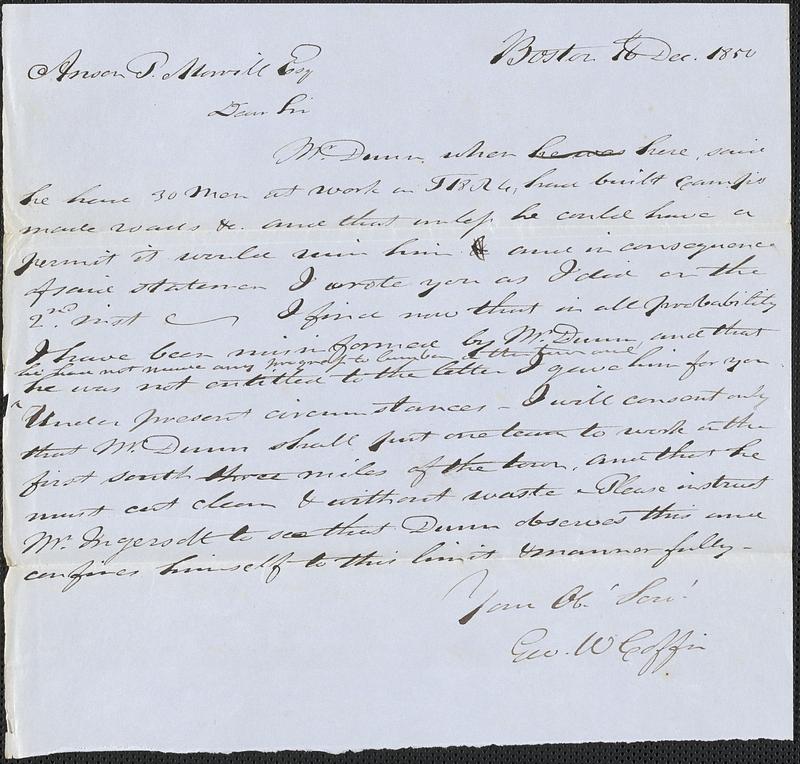 Boston 16 Dec. 1850
Anson P. Morrill Esq
Dear Sir
Mr. Dunn, when he was here, said
he have 30 Men at work on T18 R4, had built Camps
made roads &c. and that unless he could have a
permit it would ruin him & and in consequence
of said statemen I wrote you as I did on the
2nd. inst I find now that in all probability
I have been misinformed by Mr. Dunn, and that
he has not made any progress to lumber at the town and
he was not entitled to the letter I gave him for you.
Under present circumstances - I will consent only
that Mr. Dunn shall put one team to work on the
first south three miles of the town, and that he
must cut clean & without waste - Please instruct
Mr. Ingersoll to see that Dunn observes this and
confines himself to this limit & manner fully -
Your Ob' Serv'
Geo. W Coffin